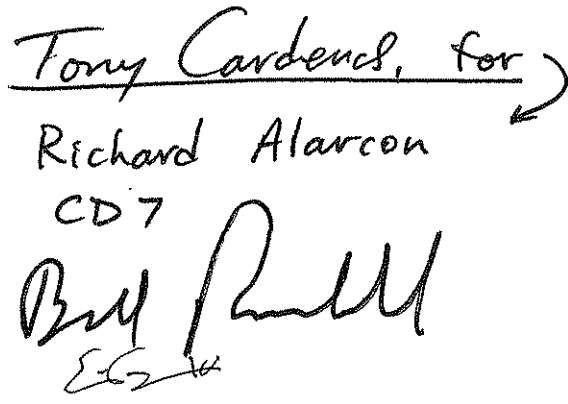 Tony Cardenas, for
Richard Alarcon
CD 7
Bill